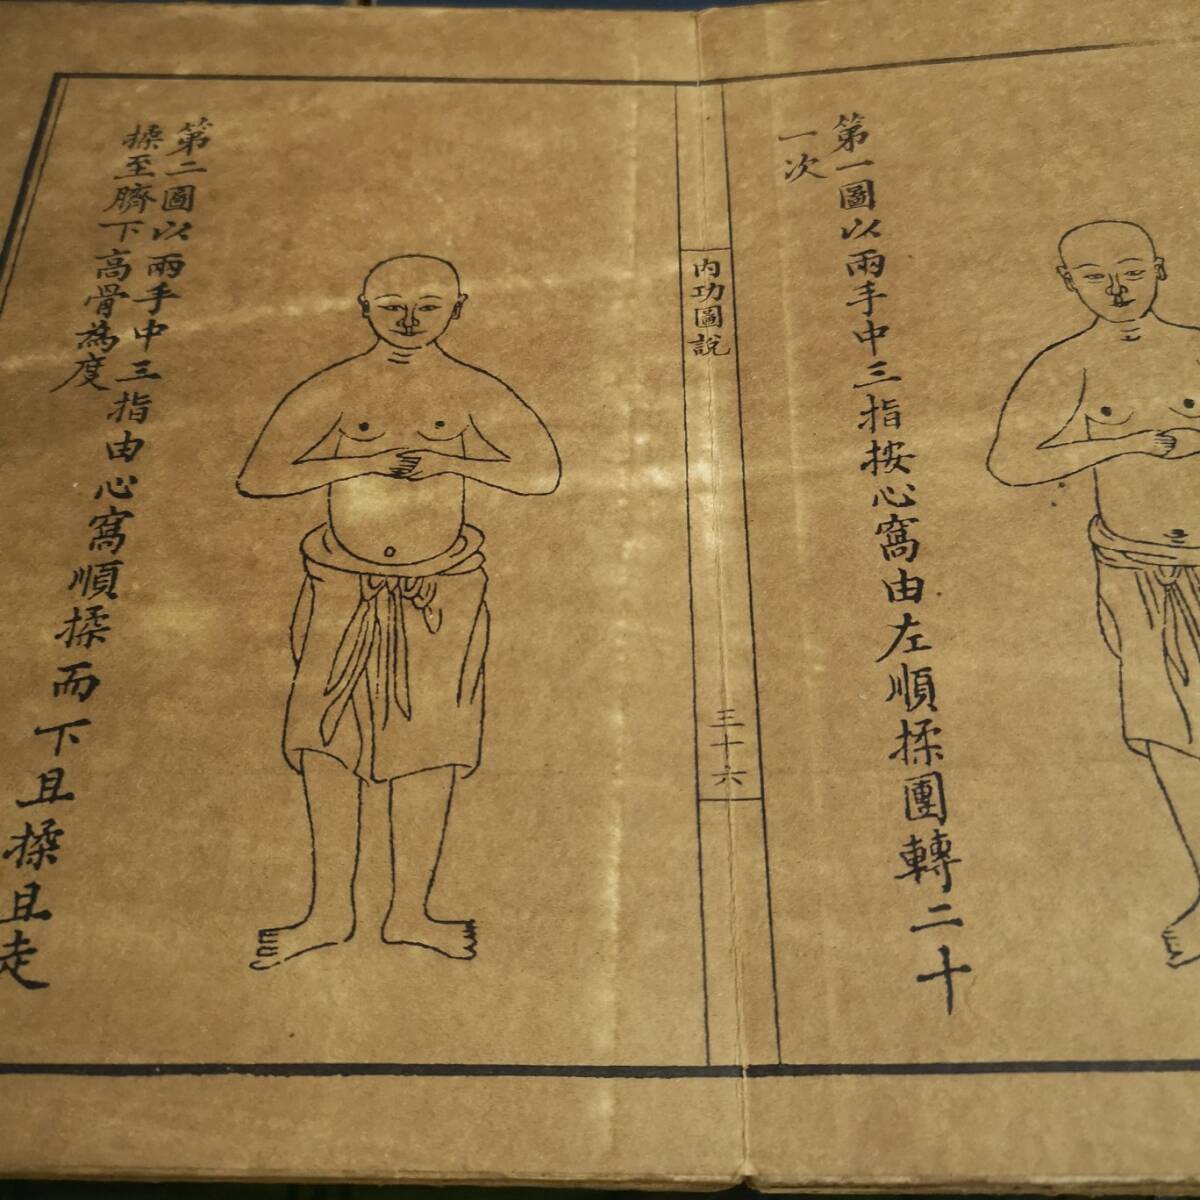 第一圖以兩手中三指按心窩由左順揉團轉二十
一次
內功圖說
三十六
第二圖以兩手中三指由心窩順揉而下且揉且走
揉至臍下高骨為度